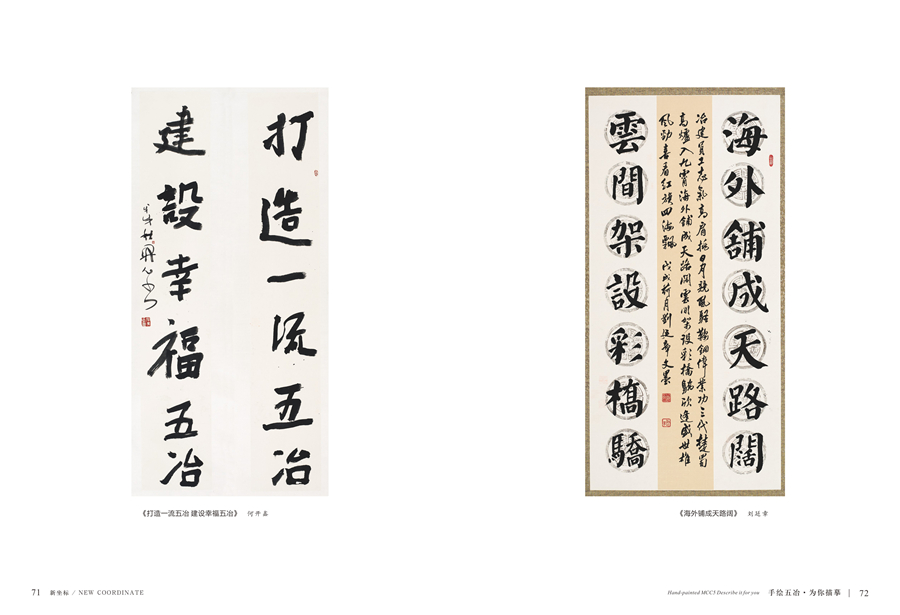 打造一流五冶
建設幸福五冶
《打造一流五冶 建设幸福五冶》 何开嘉
海外舖成天路闊
冶建員工志氣高肩挑日月競風騷鞍鋼偉業功三代楚蜀
高爐入九霄海外鋪成天路闊雲間架設彩橋驕欣逢盛世雄
風勁喜看红旗四海飄 戊戌 月劉廷章文墨
雲間架設彩橋驕
《海外铺成天路阔》 刘廷章
71 新坐标 / NEW COORDINATE
Hand-painted MCC5 Describe it for you 手绘五冶·为你描摹 | 72